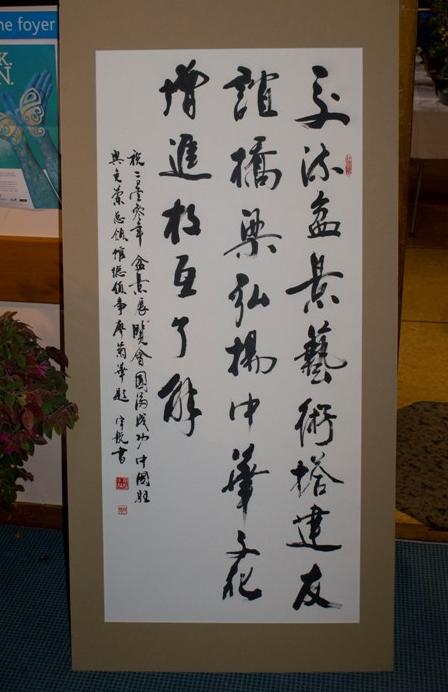 交流盆景藝術搭建友
誼橋梁弘揚中華文化
增進相互了解
祝二零年盆景展覽會圓滿成功中國駐
奧克蘭總領館總領事廖菊華題 書
he foyer
K.
N.